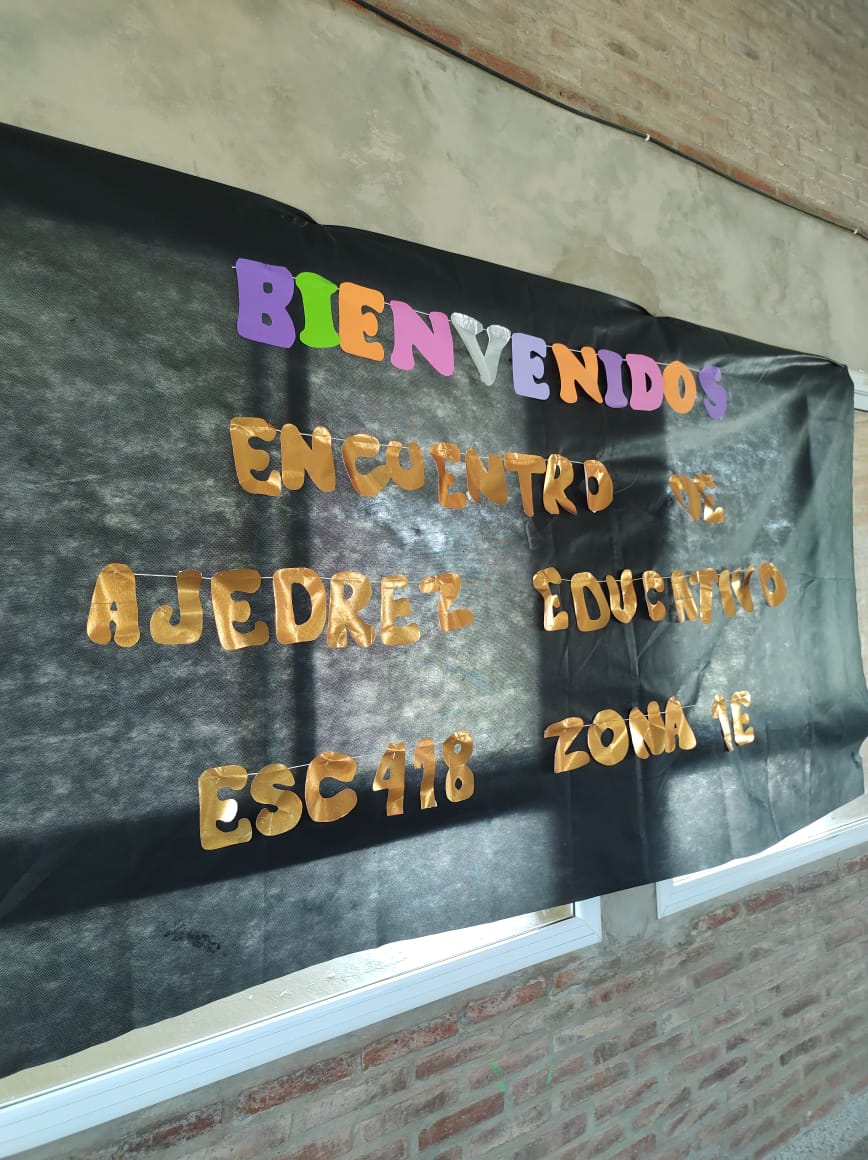 BIENVENIDOS
ENCUENTRO DE
AJEDREZ EDUCATIVO
ESC 418 ZONA 1E